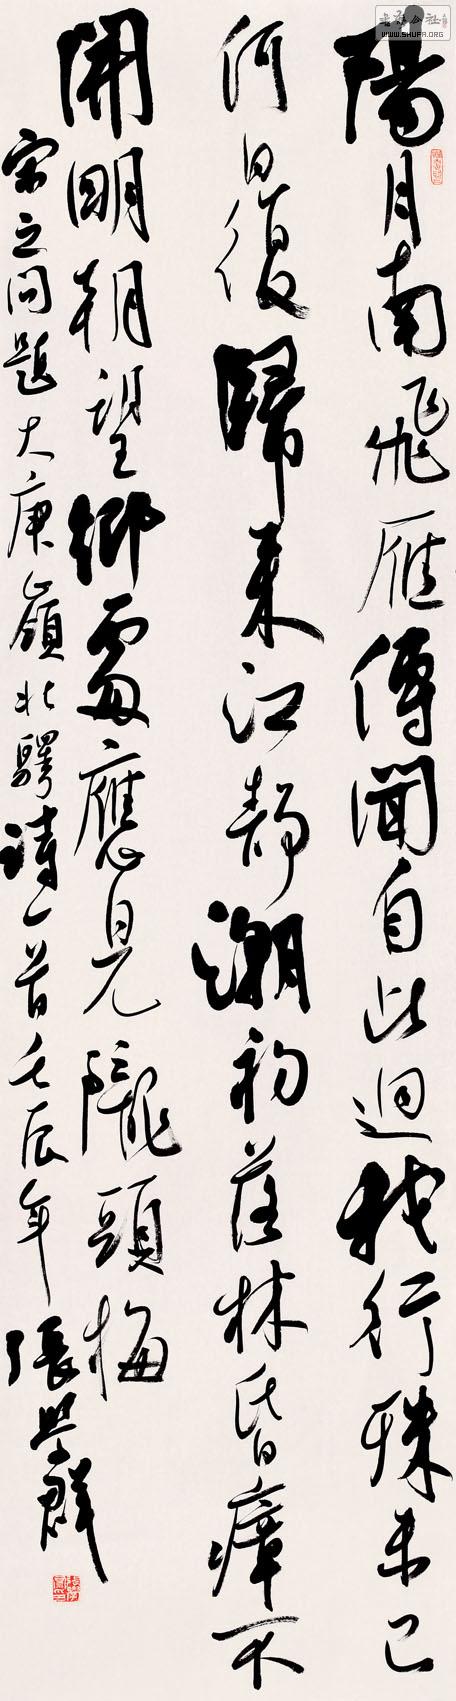 書法公社
WWW.SHUFA.ORG
陽月南飛雁傳聞自此迴我行殊未已
何日復歸來江靜潮初落林昏瘴不
開明朝望鄉處應見隴頭梅
宋之問題大庾嶺北驛詩一首壬辰年張學群